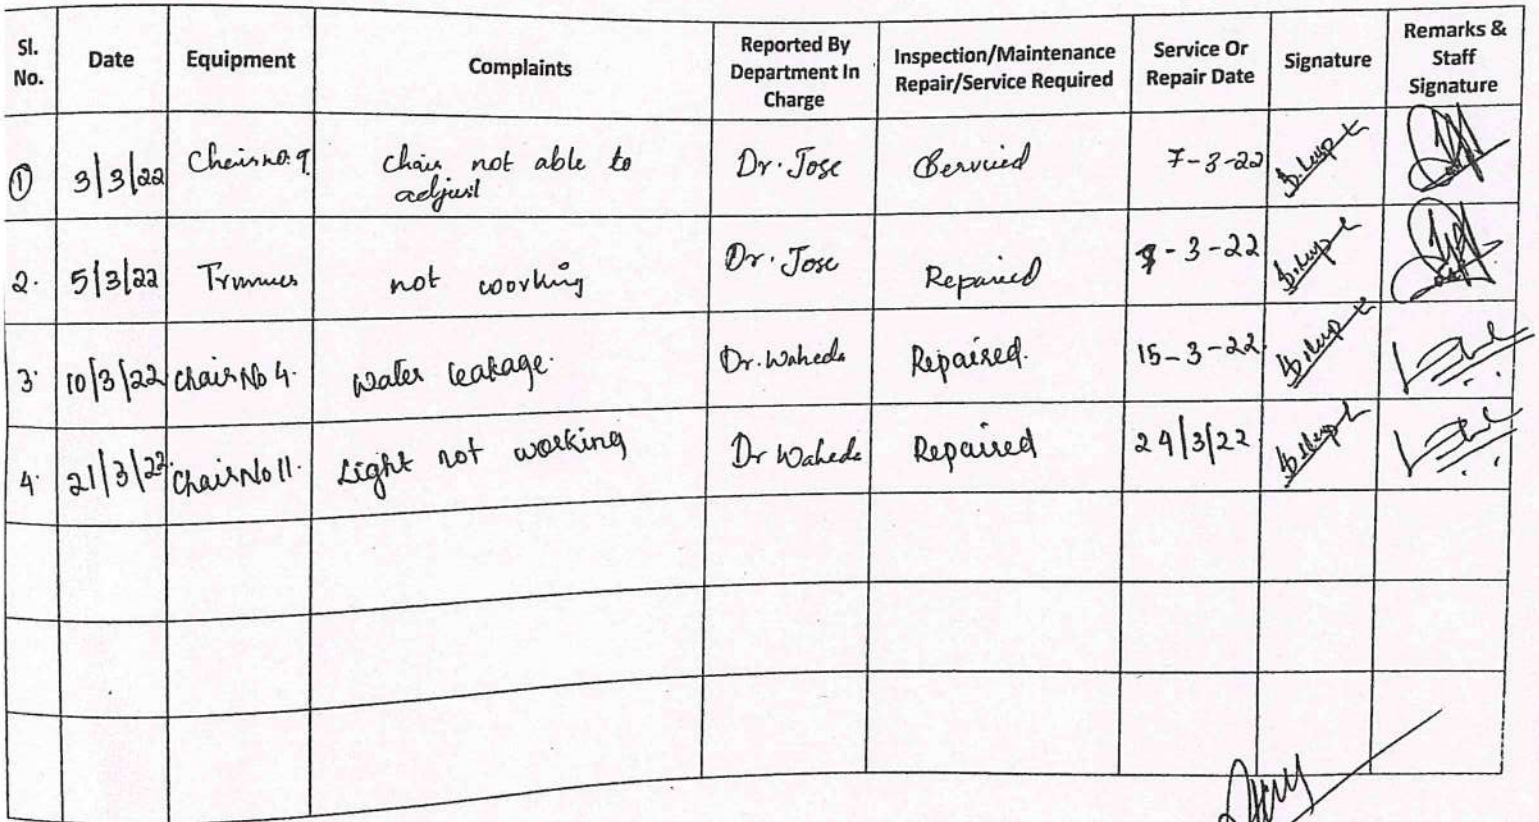 Sl. No. Date Equipment Complaints Reported By Department In Charge Inspection/Maintenance Repair/Service Required Service Or Repair Date Signature Remarks & Staff Signature
① 3/3/22 Chair no. 9 chair not able to adjust Dr. Jose Serviced 7-3-22
2. 5/3/22 Trimmer not working Dr. Jose Repaired -3-22
3. 10/3/22 Chair No 4. water leakage. Dr. Waheda Repaired. 15-3-22
4. 21/3/22. Chair No 11. Light not working Dr Waheda Repaired 24/3/22